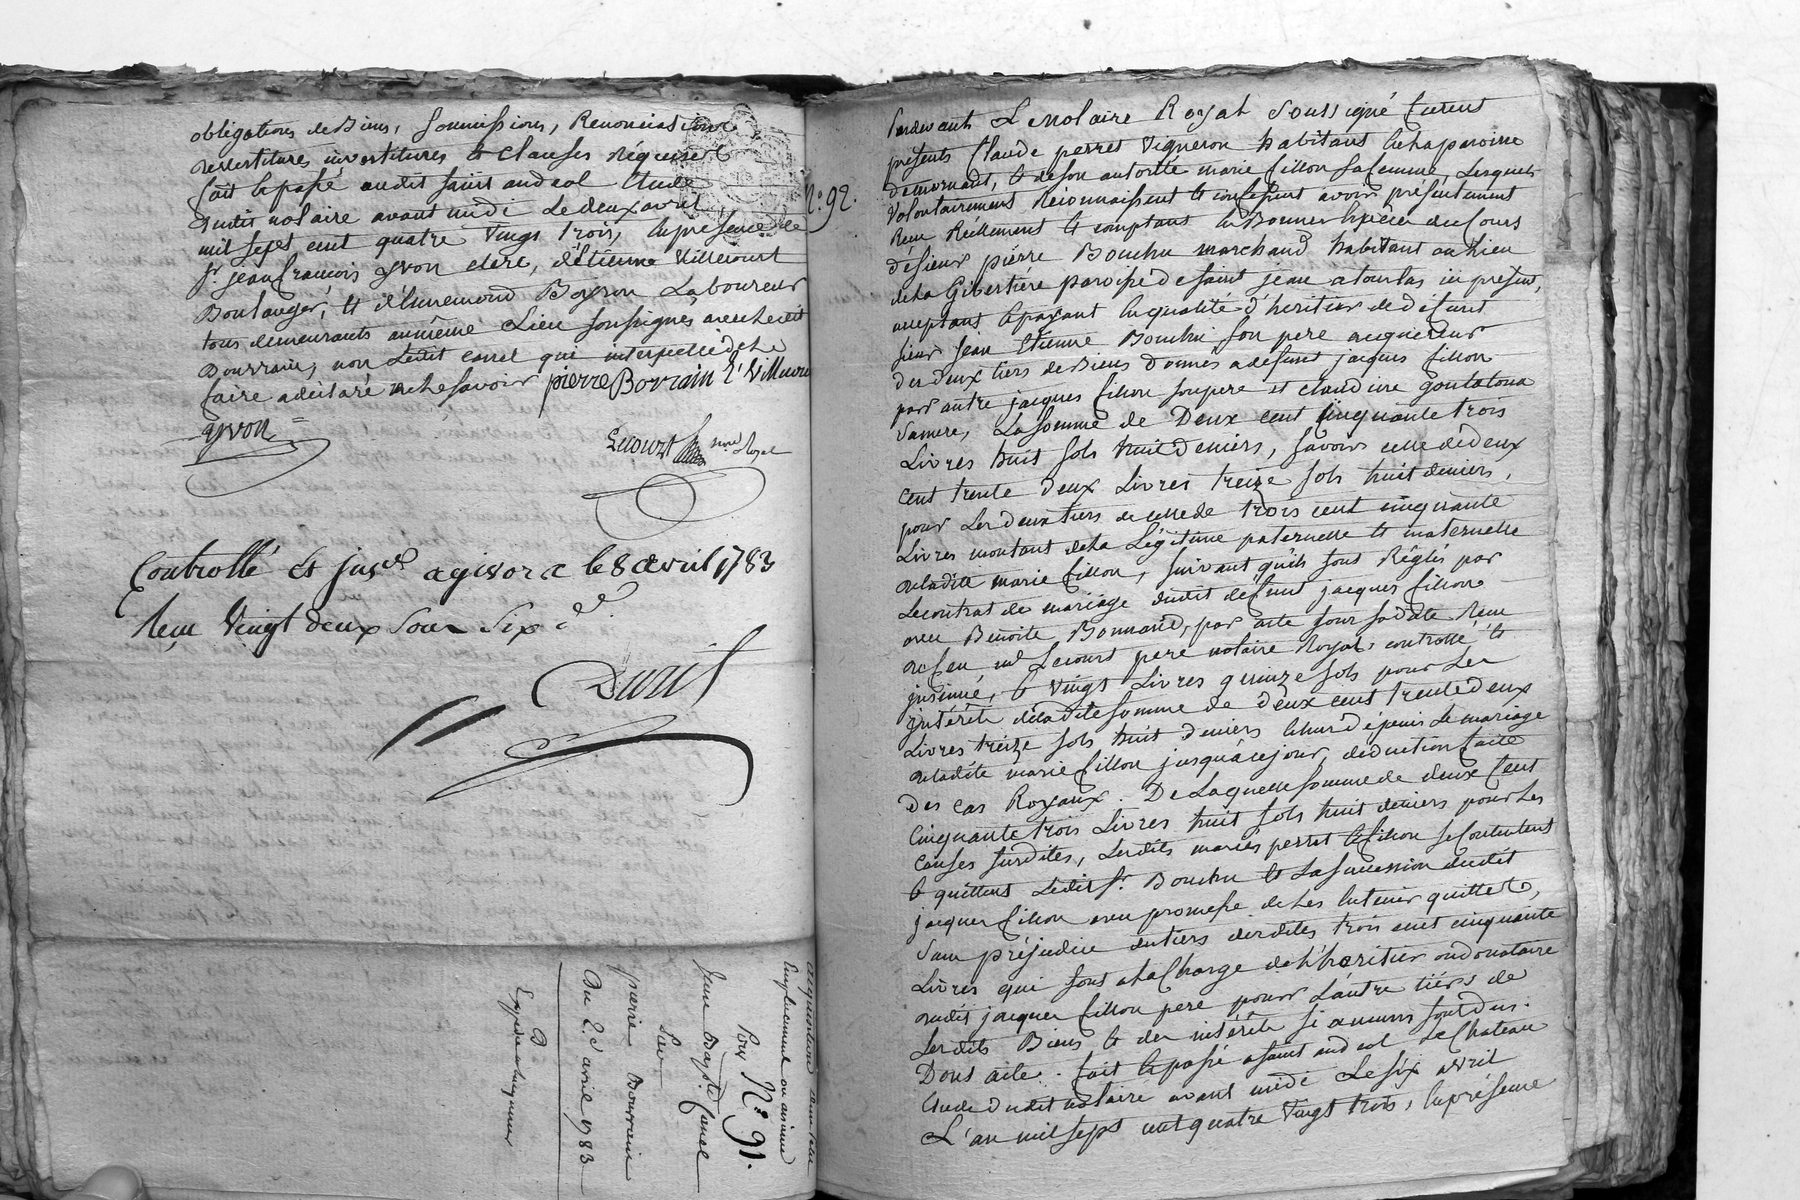 obligations de Biens, soumissions, Renonciations
revestitures investitures et clauses Requises
fait et passé audit saint andeol Etude
dudit notaire avant midi Le deux avril
mil sept cent quatre vingt trois, en présence de
Sr. jean francois yvon clerc, d'étienne Villecourt
Boulanger, et d'Ennemond Boyron Laboureur
tous demeurants au même Lieu soussignés avec ledit
Bourrain, non Ledit Canel qui interpellé de le
faire a déclaré ne le savoir pierre Borrain E Villecour
yvon
Lecourt no.re Royal
Controllé et jns.é a givors le 8 avril 1783
Reçu Vingt deux sous six d.
Duril
acquisition
Pour N.° 91.
jean Bapt.e Canel
pierre Bourrain
Du 2.e avril 1783
N.° 92.
Pardevant Le Notaire Royal soussigné furent
présents Claude perret Vigneron habitant en la paroisse
de mornant, et de son autorité marie fillon sa femme, Lesquels
volontairement Reconnaissent et confessent avoir présentement
Reçu Réellement et comptant en Bonnes Espèces de Cours
de sieur pierre Bouchu marchand habitant au Lieu
de La Gibertière paroisse de saint jean a toulas ici présent,
acceptant et payant en qualité d'heritier de défunt
sieur Jean Etienne Bouchu son pere acquereur
des deux tiers des Biens donnés a défunt jacques fillon
par autre jacques fillon son pere et claudine goutatona
sa mere, La somme de Deux cent cinquante trois
Livres huit sols huit deniers, savoir celle de deux
cent trente deux Livres treize sols huit deniers,
pour Les deux tiers de celle de trois cent cinquante
Livres montant de la Légitime paternelle et maternelle
de ladite marie fillon, suivant qu'ils sont Réglés par
Le contrat de mariage dudit défunt jacques fillon
avec Benoite Bonnand, par acte sous sa date Reçu
de feu Me Lecourt pere notaire Royal, controllé et
jnsinué, et vingt Livres quinze sols pour les
jntérêts de ladite somme de deux cent trente deux
Livres treize sols huit deniers échus depuis Le mariage
de ladite marie fillon jusqu'à ce jour, déduction faite
des cas Royaux. De Laquelle somme de deux Cent
Cinquante trois Livres huit sols huit deniers pour Les
causes susdites, Lesdits mariés perret et fillon se contentent
et quittent Ledit Sr. Bouchu et La succession dudit
jacques fillon avec promesse de Les en tenir quittes,
sans préjudice du tiers desdites trois cent cinquante
Livres qui sont a la Charge de l'héritier ou donataire
dudit jacques fillon pere pour L'autre tiers de
Lesdits Biens et des intérêts si aucuns sont dus.
Dont acte. fait et passé a saint andeol Le Chateau
Etude dudit notaire avant midi Le six avril
L'an mil sept cent quatre vingt trois, en présence